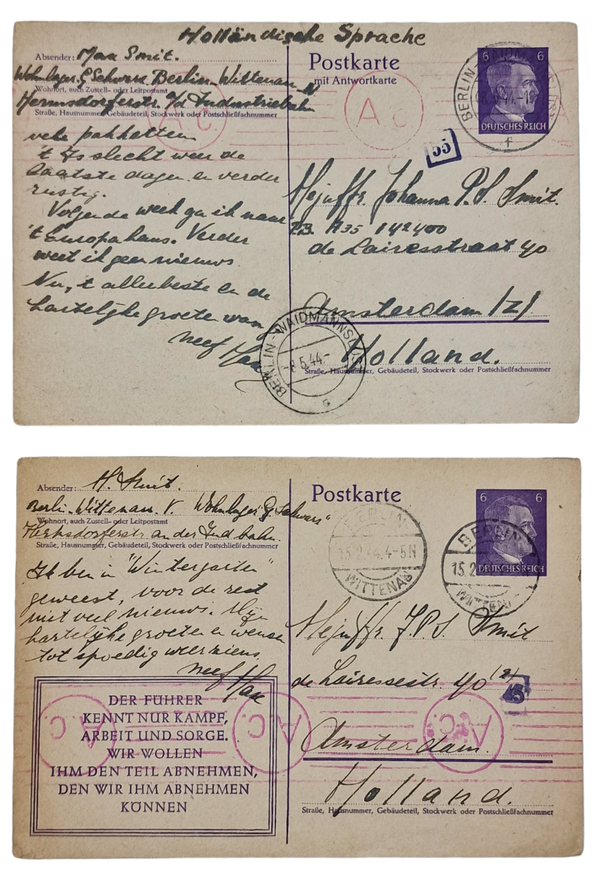 Holländische Sprache
Absender: Max Smit.
Wohnlager G Schwerz Berlin. Wittenau N
Wohnort, auch Zustell- oder Leitpostamt
Hermsdorferstr. a/d Industriebahn
Straße, Hausnummer, Gebäudeteil, Stockwerk oder Postschließfachnummer
Postkarte
mit Antwortkarte
6 6
DEUTSCHES REICH
BERLIN
f
A C
A C.
55
vele pakketten
't Is slecht weer de
laatste dagen en verder
rustig.
Volgende week ga ik naar
't Europahaus. Verder
weet ik geen nieuws.
Nu, 't allerbeste en de
hartelijke groeten van
neef
Mejuffr. Johanna P. S. Smit.
P.B. A35 142400
de Lairessestraat 40
Amsterdam /Z/
Holland.
BERLIN-WAIDMANNSLUST
5.44.-
Straße, Hausnummer, Gebäudeteil, Stockwerk oder Postschließfachnummer
Absender: M. Smit.
Berlin-Wittenau. Wohnlager G
Wohnort, auch Zustell- oder Leitpostamt
Hermsdorferstr an der Ind bahn.
Straße, Hausnummer, Gebäudeteil, Stockwerk oder Postschließfachnummer
Postkarte
6 6
DEUTSCHES REICH
BERLIN
15.2.44.4-5N
WITTENAU
BERLIN
15.2
WITTENAU
Ik ben in "Wintergarten"
geweest, voor de rest
niet veel nieuws. Mijn
hartelijke groeten en wensch
tot spoedig weerziens,
neef
Mejuffr. J. P. S. Smit
de Lairessestr. 40
Amsterdam.
Holland.
A.C.
A.C.
A.C.
DER FÜHRER
KENNT NUR KAMPF,
ARBEIT UND SORGE.
WIR WOLLEN
IHM DEN TEIL ABNEHMEN,
DEN WIR IHM ABNEHMEN
KÖNNEN
Straße, Hausnummer, Gebäudeteil, Stockwerk oder Postschließfachnummer